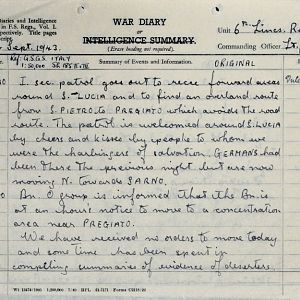 WAR DIARY
or
INTELLIGENCE SUMMARY.
(Erase heading not required).
in F.S. Regs., Vol. I.
pectively. Title pages
Unit 6th Lincs. R
Commanding Officer Lt.
Sept. 1943.
Ref: G.S.G.S. ITALY
Summary of Events and Information
ORIGINAL
1 sec. patrol goes out to recce. forward areas
round S. LUCIA and to find an overland route
from S. PIETRO to PREGIATO which avoids the road
route. The patrol is welcomed around S. LUCIA
by cheers and kisses by people to whom we
were the harbingers of salvation, GERMANS had
been there the previous night but are now
moving N. towards SARNO.
Bn. O group is informed that the Bn. is
at an hour's notice to move to a concentration
area near PREGIATO.
We have received no orders to move today
and some time has been spent in
compiling summaries of evidence of deserters.